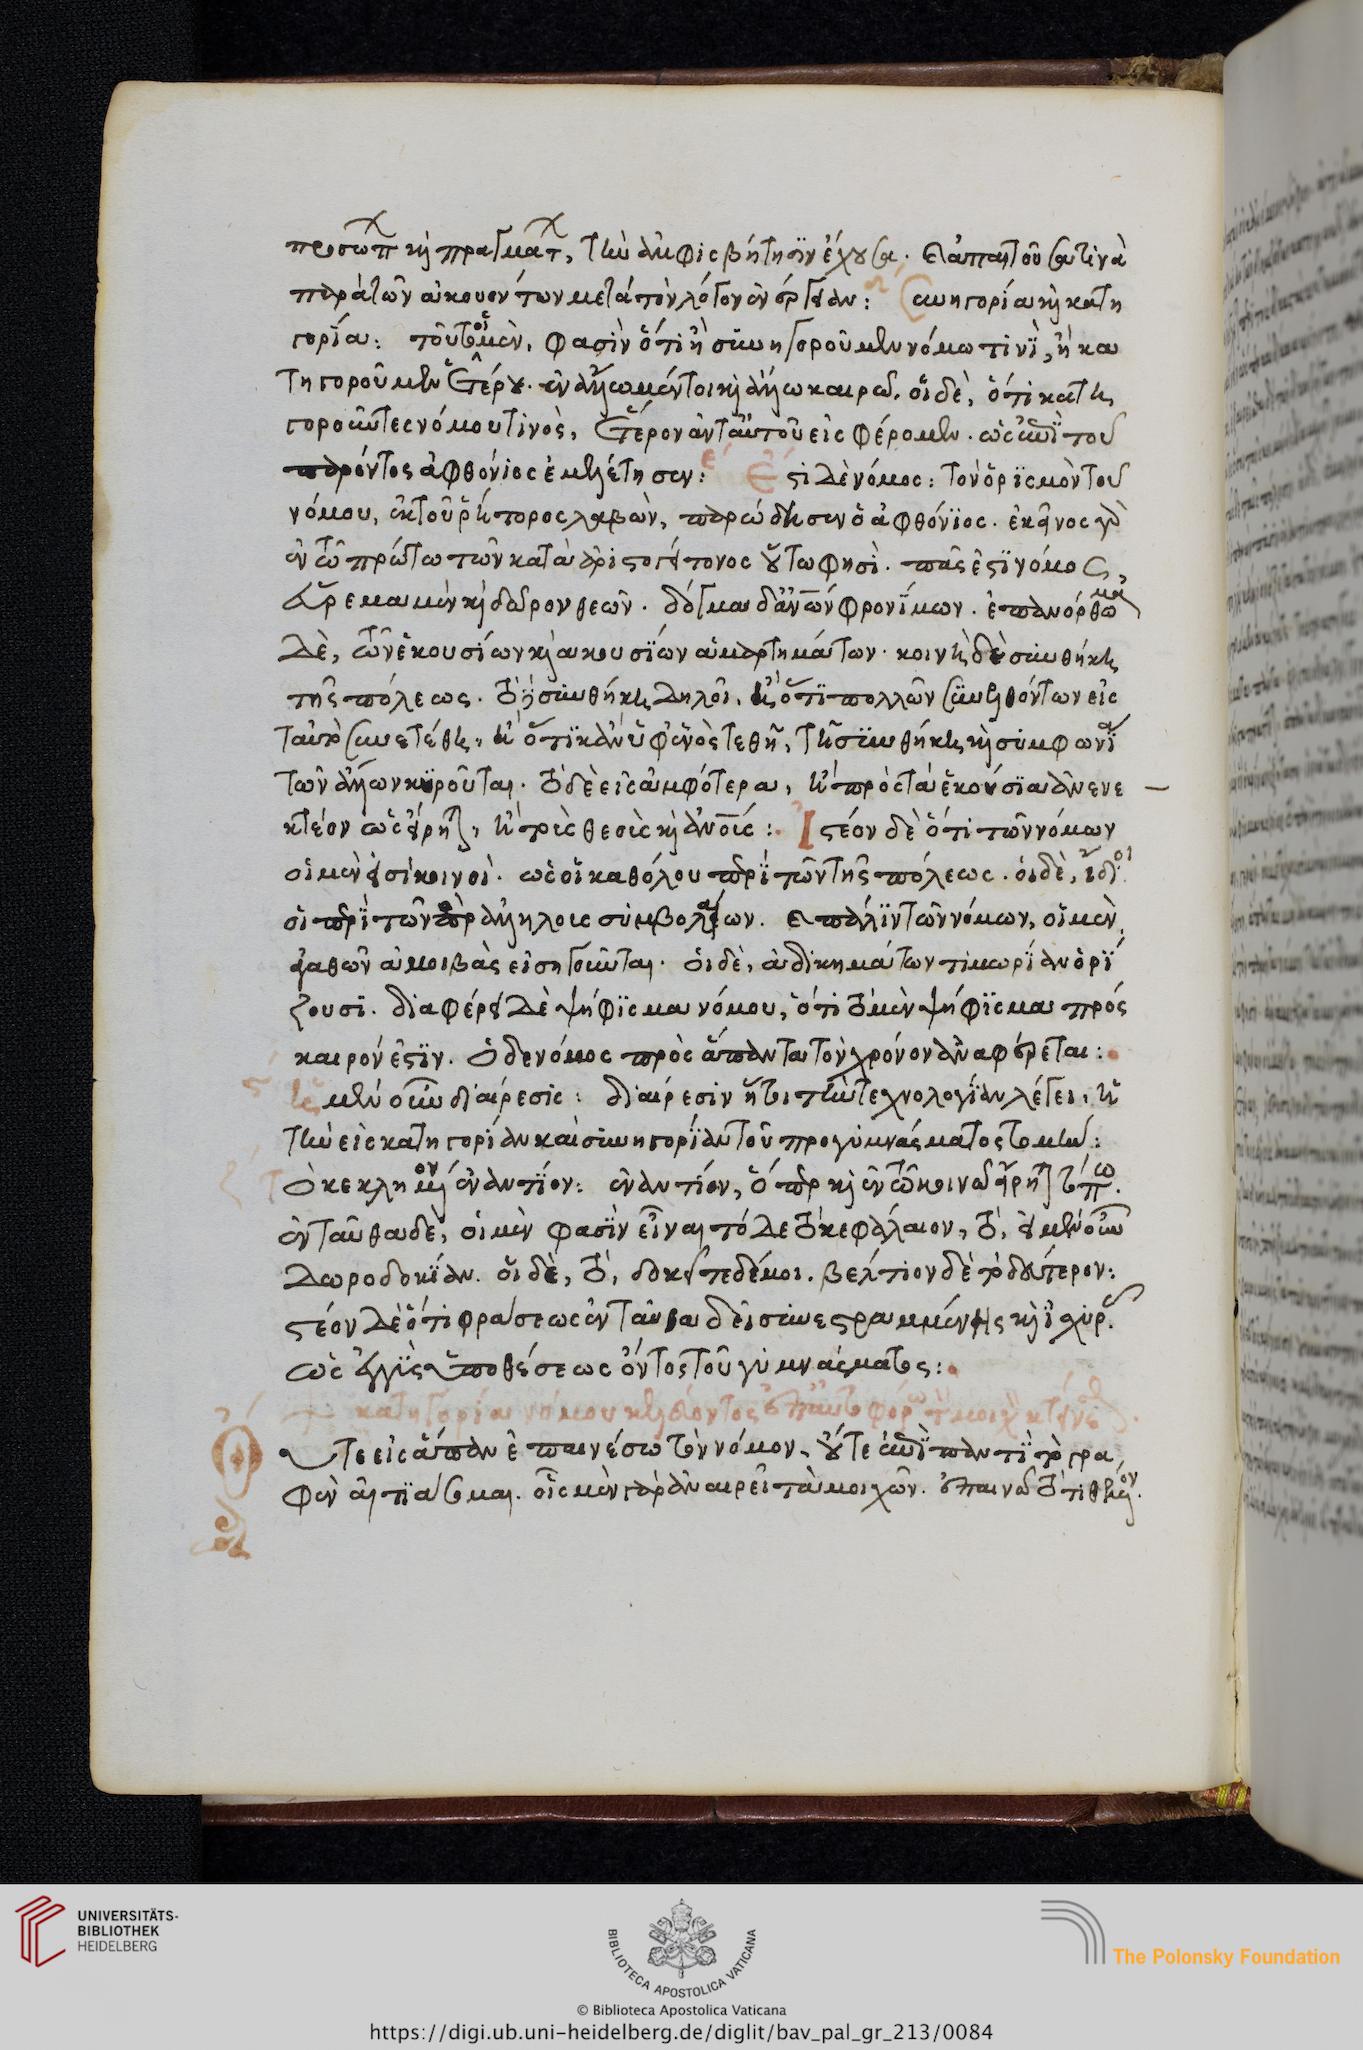 προσωπ καὶ πραγματ, τὴν ἀμφισβήτησϊν ἔχουσα. καὶ ἀπαιτοῦσα τινὰ
παρὰ τῶν ἀκουόντων μετὰ τὸν λόγον ἐνέργειαν: δ Συνηγορία καὶ κατη
γορία: τοῦτο οἱ μὲν, φασὶν ὅτι ἢ συνηγοροῦμεν νόμω τινῒ, ἢ κα
τηγοροῦμεν ἑτέρου. ἐν ἄλλω μέντοι καὶ ἄλλω καιρῶ. οἱ δὲ, ὅτι κατη
γοροῦντες νόμου τινὸς, ἕτερον ἀντ' αὐτοῦ εἰσφέρομεν. ὡς ἐπῒ τοῦ
παρόντος ἀφθόνιος ἐμελέτησεν: ε Ἔστι δὲ νόμος: τὸν ὁρϊσμὸν τοῦ
νόμου, ἐκ τοῦ ῥήτορος λαβὼν, παρώδησεν ὁ ἀφθόνϊος. ἐκεῖνος γὰρ
ἐν τῶ πρώτω τῶν κατὰ ἀριστογείτονος οὕτω φησὶ. πᾶς ἐστϊ νόμος,
εὕρεμα μὲν καὶ δῶρον θεῶν. δόγμα δ' ἀνῶν φρονίμων. ἐπανόρθωμα
δὲ, τῶν ἑκουσίων καὶ ἀκουσίων ἁμαρτημάτων. κοινὴ δὲ συνθήκη
τῆς πόλεως. τὸ δὲ συνθήκη δηλοῖ, καὶ ὅτϊ πολλῶν συνελθόντων εἰς
ταὐτὸ συνετέθη, καὶ ὅτϊ κἂν ὑφ' ἑνὸς τεθῆ, τῆ συνθήκη καὶ συμφωνίᾳ
τῶν ἄλλων κυροῦται. τὸ δὲ εἰς ἀμφότερα, καὶ πρὸς τὰ ἑκούσϊα ἀνενε
κτέον ὡς εἴρηται, καὶ πρὸς θεοὺς καὶ ἀνοις: Ἰστέον δὲ ὅτι τῶν νόμων
οἱ μὲν εἰσὶ κοινοὶ. ὡς οἱ καθόλου περὶ τῶν τῆς πόλεως. οἱ δὲ, ἴδιοι.
οἱ περὶ τῶν πρὸς ἀλλήλοις συμβολαίων. καὶ πάλϊν τῶν νόμων, οἱ μὲν,
ἀγαθῶν ἀμοιβὰς εἰσηγοῦνται. οἱ δὲ, ἀδικημάτων τιμωρίαν ὁρῒ
ζουσϊ. διαφέρει δὲ ψήφϊσμα νόμου, ὅτι τὸ μὲν ψήφϊσμα πρὸς
καιρόν ἐστϊν. ὁ δε νόμος πρὸς ἅπαντα τὸν χρόνον ἀναφέρεται:
ϛ Ἡ μὲν οὖν διαίρεσις: διαίρεσιν ἤτοι τὴν τεχνολογίαν λέγει, ἢ
τὴν εἰς κατηγορίαν καὶ συνηγορίαν τοῦ προγυμνάσματος τομὴν:
ζ Τὸ κεκλημένον ἐναντίον: ἐναντίον, ὅπερ καὶ ἐν τῶ κοινῶ εἴρηται τόπω.
ἐνταῦθα δὲ, οἱ μὲν φασὶν εἶναι τόδε τὸ κεφάλαιον, τὸ, ἐγὼ μὲν οὖν
δωροδοκίαν. οἱ δὲ, τὸ, δοκεῖτε δέ μοι. βέλτιον δὲ τὸ δεύτερον:
στέον δὲ ὅτι φράσεως ἐνταῦθα δεῖ συνεστραμμένης καὶ ἰσχυρᾶς.
ὡς ἐγγὺς ὑποθέσεως ὄντος τοῦ γυμνάσματος:
κατηγορία νόμου κελεύοντος
Οὔτε εἰς ἅπαν ἐπαινέσω τὸν νόμον, οὔτε ἐπῒ παντῒ τὸ γρα
φὲν αἰτϊάσομαι. οἷς μὲν γὰρ ἀναιρεῖ τὰ μοιχῶν. ἐπαινῶ τὸ τιθέμενον.
UNIVERSITÄTS-
BIBLIOTHEK
HEIDELBERG
BIBLIOTECA APOSTOLICA VATICANA
© Biblioteca Apostolica Vaticana
The Polonsky Foundation
https://digi.ub.uni-heidelberg.de/diglit/bav_pal_gr_213/0084